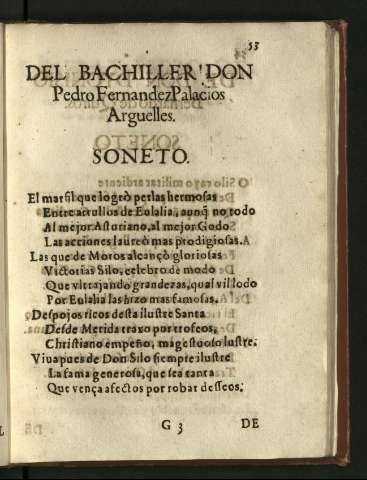 53
DEL BACHILLER DON
Pedro Fernandez Palacios
Arguelles.
SONETO.
El marfil que logrò perlas hermosas
Entre arrullos de Eulalia, aunq̃ no todo
Al mejor Asturiano, al mejor Godo
Las acciones laureò mas prodigiosas. A
Las que de Moros alcançò gloriosas
Victorias Silo, celebro de modo
Que vltrajando grandezas, qual vil lodo
Por Eulalia las hizo mas famosas.
Despojos ricos desta ilustre Santa
Desde Merida traxo por trofeos,
Christiano empeño, magestuoso lustre.
Viua pues de Don Silo siempre ilustre
La fama generosa, que sea tanta
Que vença afectos por robar desseos.
G 3 DE